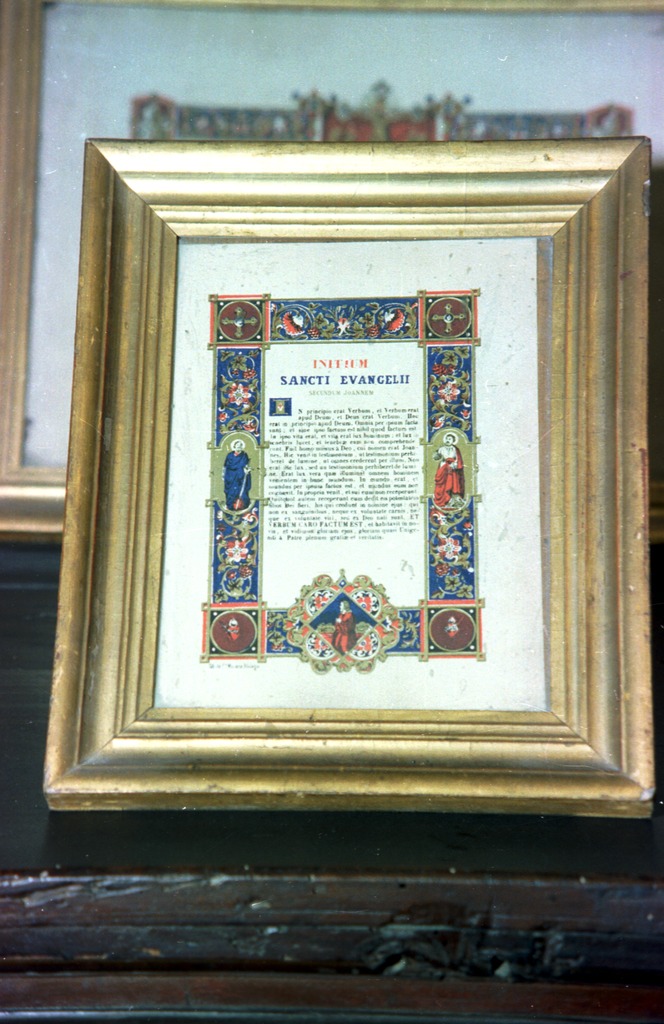 INITIUM
SANCTI EVANGELII
SECUNDUM JOANNEM
IN principio erat Verbum, et Verbum erat
apud Deum, et Deus erat Verbum. Hoc
erat in principio apud Deum. Omnia per ipsum facta
sunt; et sine ipso factum est nihil quod factum est.
In ipso vita erat, et vita erat lux hominum; et lux in
tenebris lucet, et tenebræ eam non comprehende-
runt. Fuit homo missus a Deo, cui nomen erat Joan-
nes. Hic venit in testimonium, ut testimonium perhi-
beret de lumine, ut omnes crederent per illum. Non
erat ille lux, sed ut testimonium perhiberet de lumi-
ne. Erat lux vera quæ illuminat omnem hominem
venientem in hunc mundum. In mundo erat, et
mundus per ipsum factus est, et mundus eum non
cognovit. In propria venit, et sui eum non receperunt.
Quotquot autem receperunt eum dedit eis potestatem
filios Dei fieri, his qui credunt in nomine ejus; qui
non ex sanguinibus, neque ex voluntate carnis, ne-
que ex voluntate viri, sed ex Deo nati sunt. ET
VERBUM CARO FACTUM EST, et habitavit in no-
bis; et vidimus gloriam ejus, gloriam quasi Unige-
niti à Patre plenum gratiæ et veritatis.